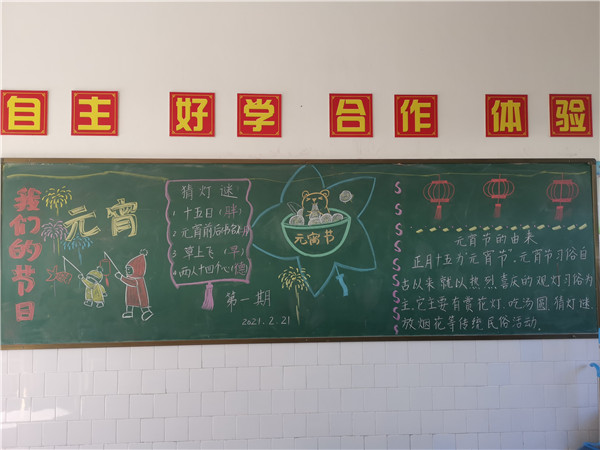 自主 好学 合作 体验
我们的节日
元宵
猜灯谜
1 十五日 (胖)
2 元宵前后
3 草上飞 (早)
4 两人十四个心 (德)
第一期
2021.2.21
元宵节
元宵节的由来
正月十五为元宵节。元宵节习俗自
古以来就以热烈喜庆的观灯习俗为
主。它主要有赏花灯、吃汤圆、猜灯谜
放烟花等传统民俗活动。